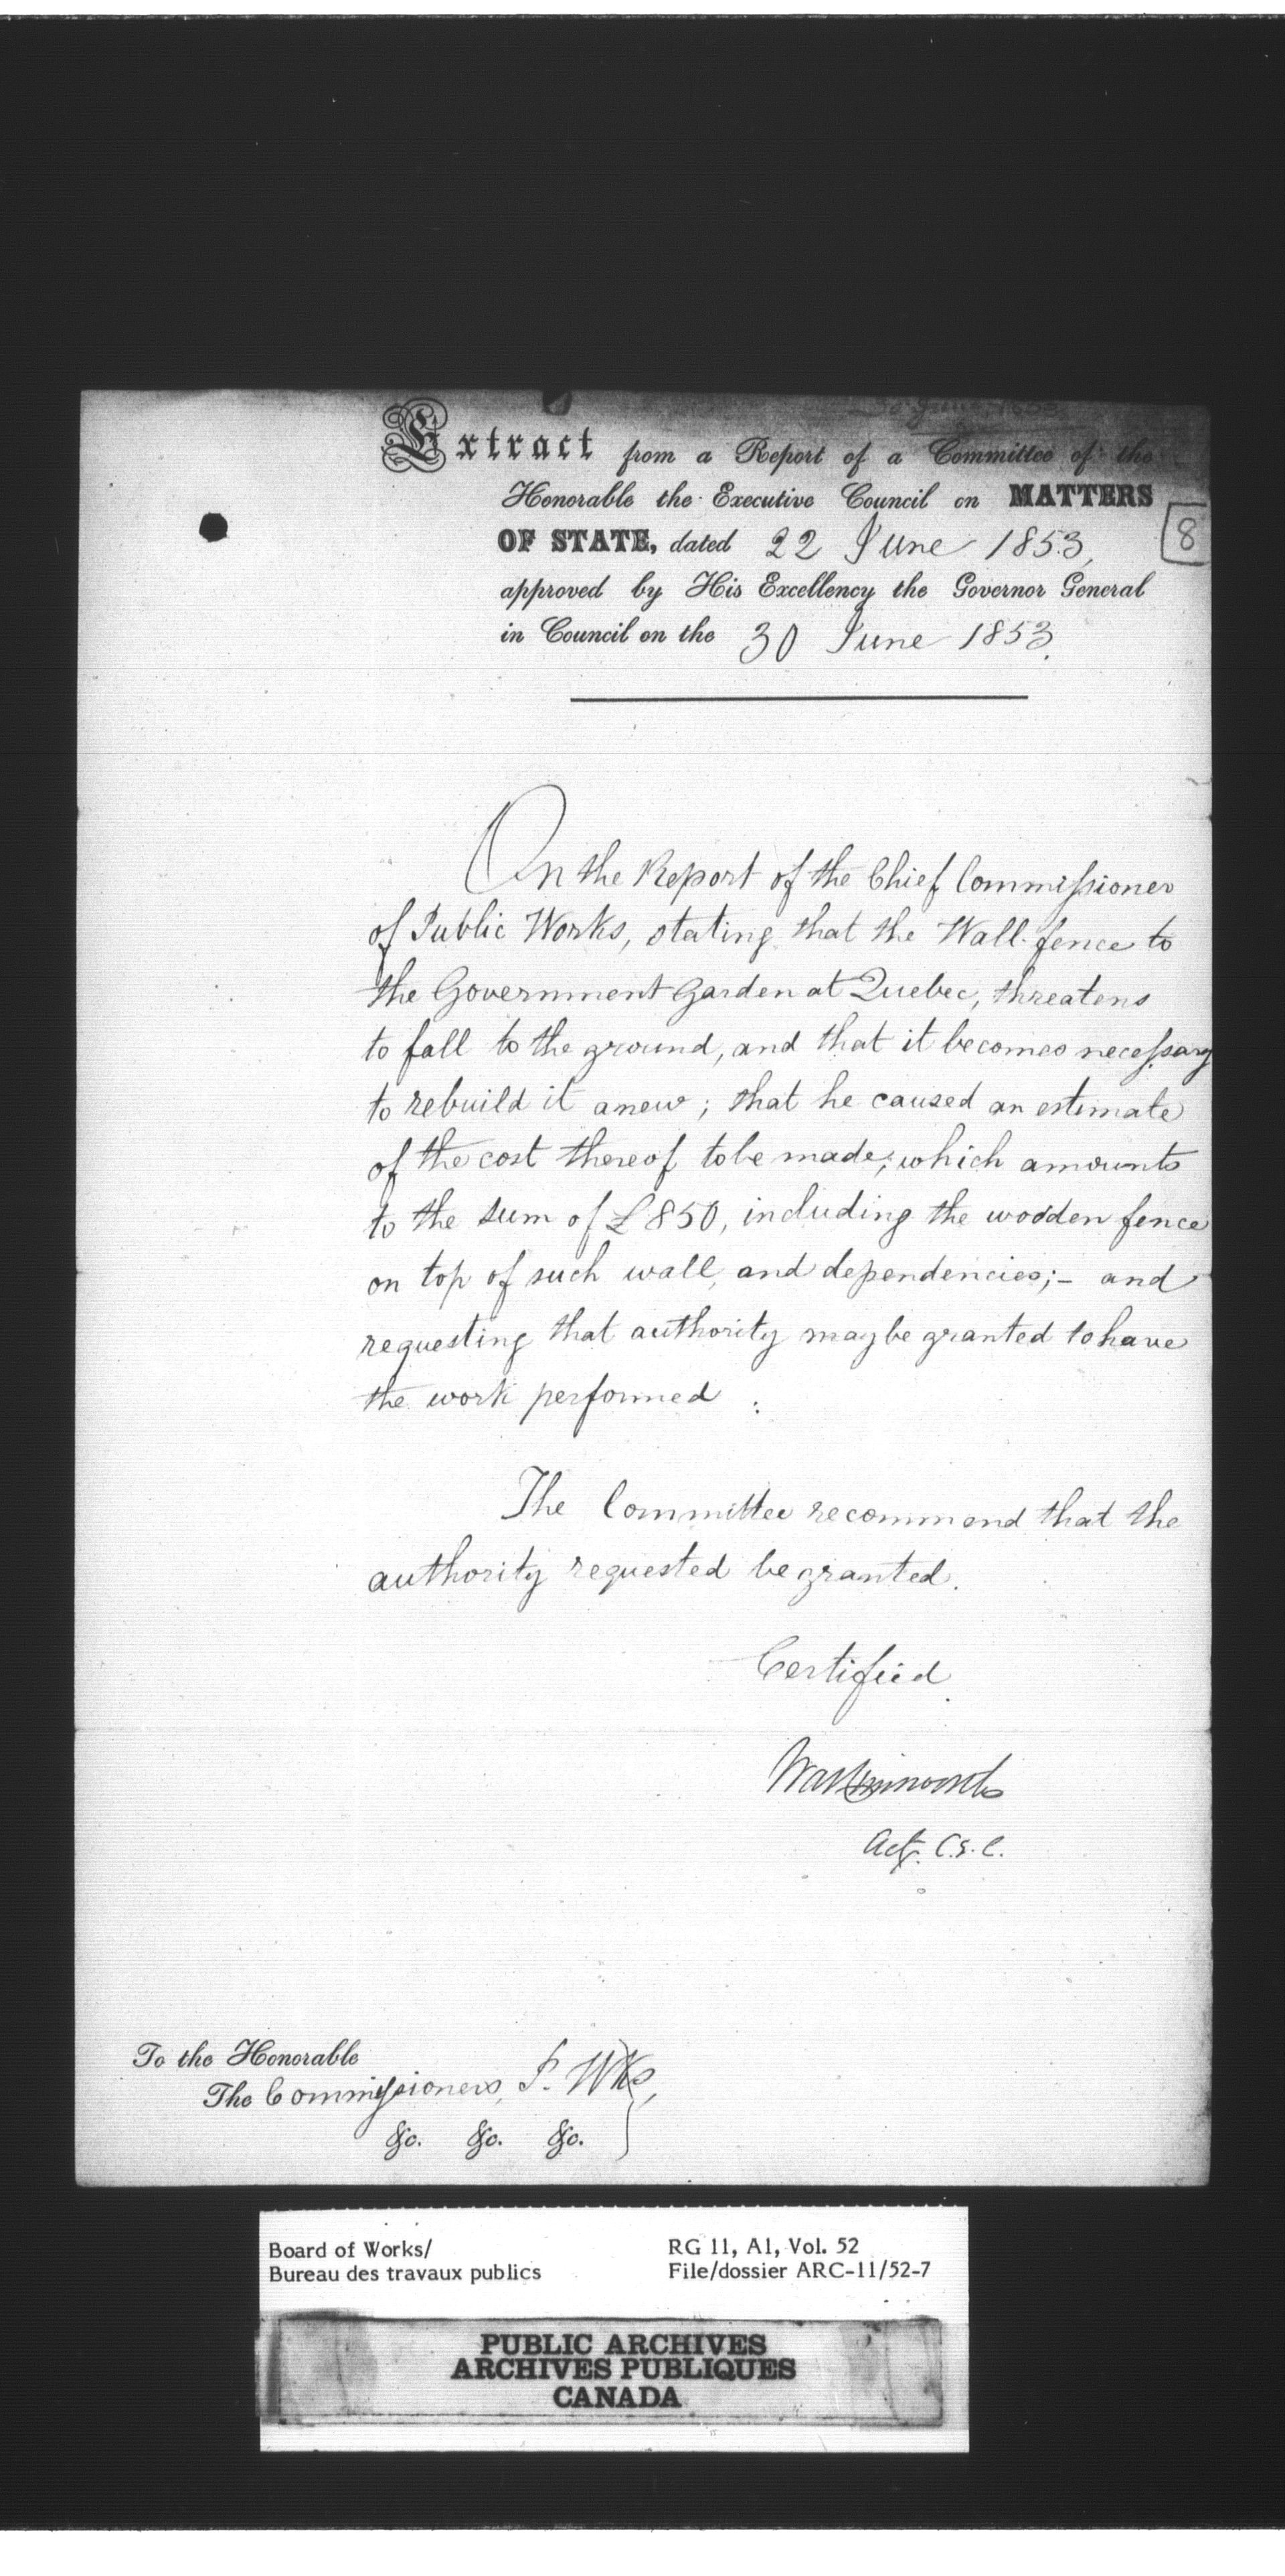 30 June, 1853
Extract from a Report of a Committee of the
Honorable the Executive Council on MATTERS
OF STATE, dated 22 June 1853,
8
approved by His Excellency the Governor General
in Council on the 30 June 1853.
On the Report of the Chief Commissioner
of Public Works, stating that the Wall-fence to
the Government Garden at Quebec, threatens
to fall to the ground, and that it becomes necessary
to rebuild it anew; that he caused an estimate
of the cost thereof to be made, which amounts
to the sum of £850, including the wooden fence
on top of such wall, and dependencies;- and
requesting that authority may be granted to have
the work performed :
The Committee recommend that the
authority requested be granted.
Certified.
Act. C.E.C.
To the Honorable
The Commissioners, P. Wks,
&c. &c. &c.
Board of Works/
Bureau des travaux publics
RG 11, A1, Vol. 52
File/dossier ARC-11/52-7
PUBLIC ARCHIVES
ARCHIVES PUBLIQUES
CANADA